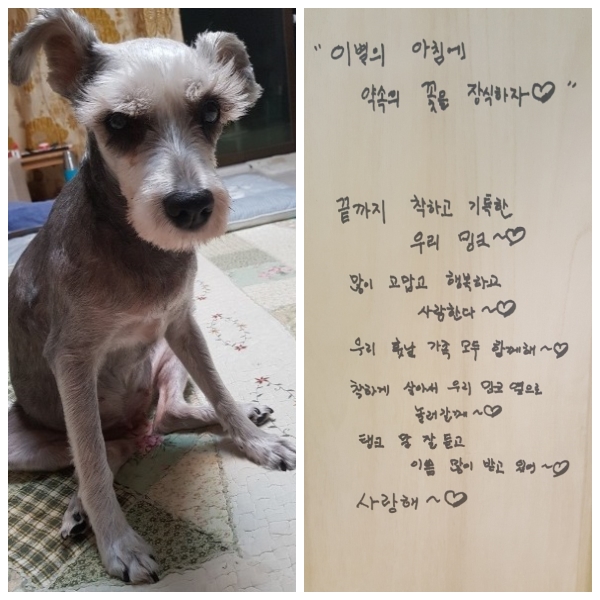 "이별의 아침에
약속의 꽃을 장식하자♡"
끝까지 착하고 기특한
우리 밍크~♡
많이 고맙고 행복하고
사랑한다~♡
우리 훗날 가족 모두 함께해~♡
착하게 살아서 우리 밍크 옆으로
놀러갈께~♡
탱크 말 잘 듣고
이쁨 많이 받고 있어~♡
사랑해~♡